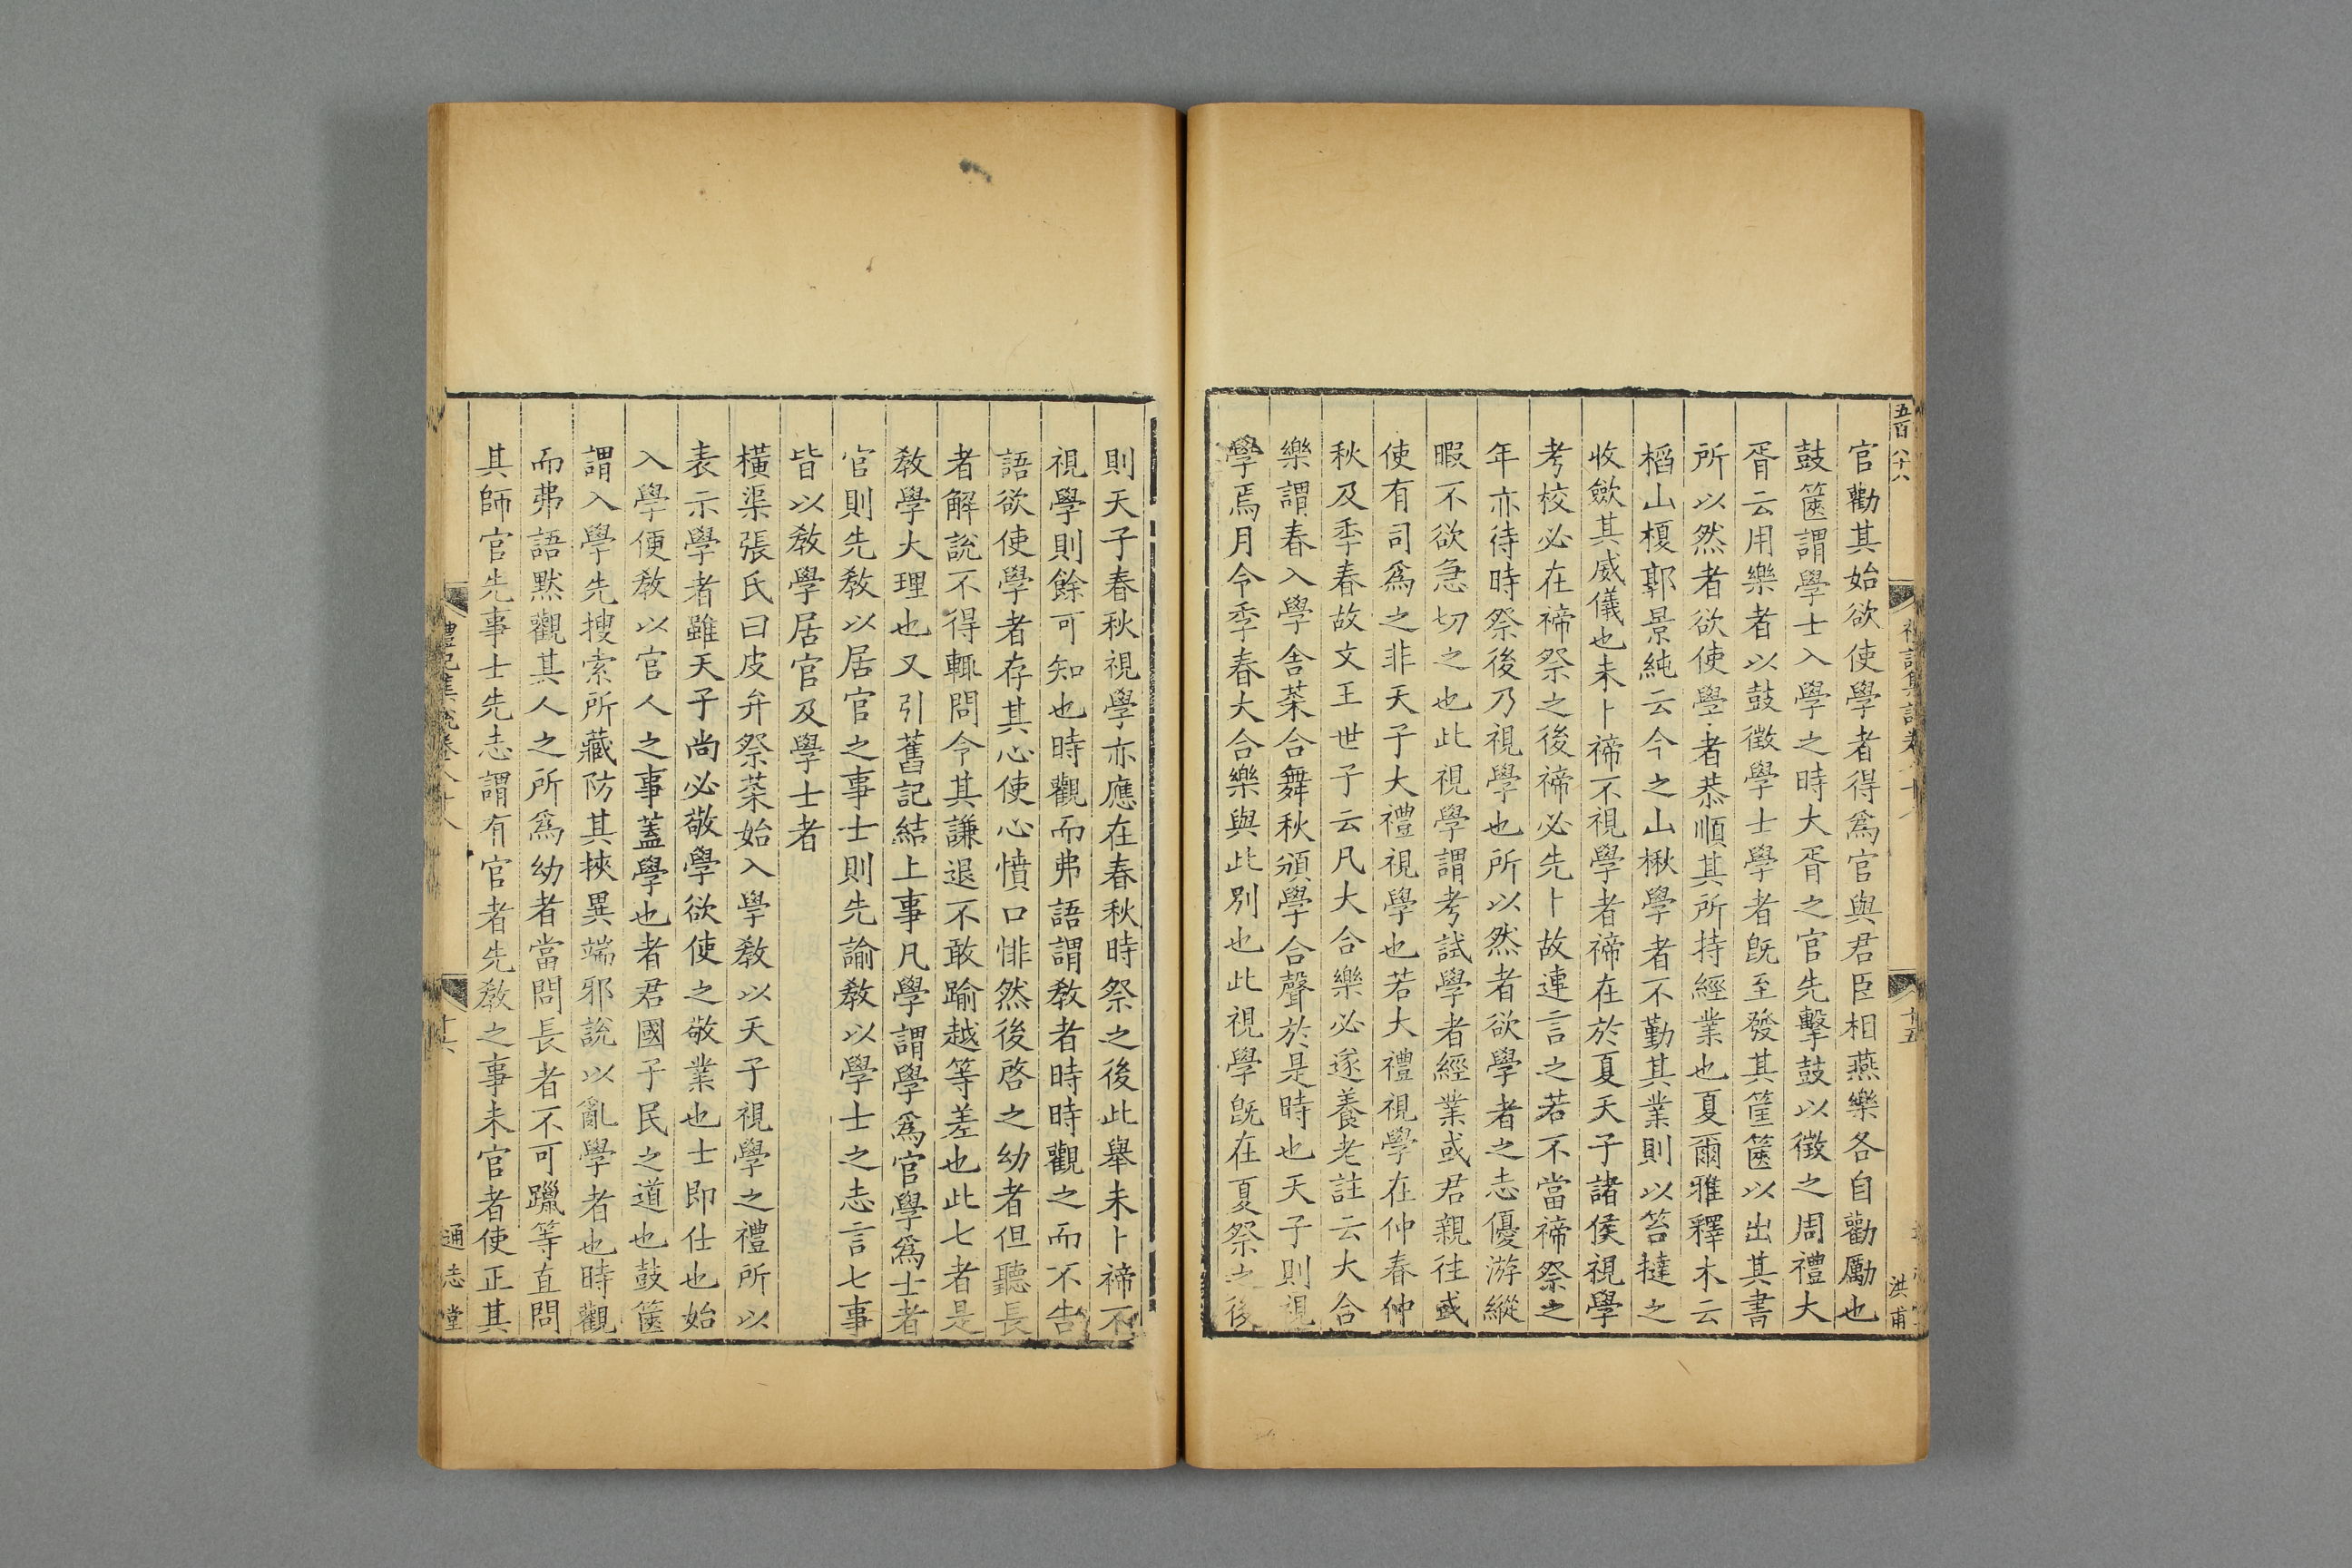 五百八十八
十五
洪甫
官勸其始欲使學者得爲官與君臣相燕樂各自勸勵也
鼓篋謂學士入學之時大胥之官先擊鼓以徵之周禮大
胥云用樂者以鼓徵學士學者旣至發其筐篋以出其書
所以然者欲使學者恭順其所持經業也夏爾雅釋木云
槄山榎郭景純云今之山楸學者不勤其業則以笞撻之
收斂其威儀也未卜禘不視學者禘在於夏天子諸侯視學
考校必在禘祭之後禘必先卜故連言之若不當禘祭之
年亦待時祭後乃視學也所以然者欲學者之志優游縱
暇不欲急切之也此視學謂考試學者經業或君親往或
使有司爲之非天子大禮視學也若大禮視學在仲春仲
秋及季春故文王世子云凡大合樂必遂養老註云大合
樂謂春入學舍菜合舞秋頒學合聲於是時也天子則視
學焉月令季春大合樂與此別也此視學旣在夏祭之後
則天子春秋視學亦應在春秋時祭之後此舉未卜禘不
視學則餘可知也時觀而弗語謂敎者時時觀之而不告
語欲使學者存其心使心憤口悱然後啓之幼者但聽長
者解說不得輒問令其謙退不敢踰越等差也此七者是
敎學大理也又引舊記結上事凡學謂學爲官學爲士者
官則先敎以居官之事士則先諭敎以學士之志言七事
皆以敎學居官及學士者
橫渠張氏曰皮弁祭菜始入學敎以天子視學之禮所以
表示學者雖天子尚必敬學欲使之敬業也士即仕也始
入學便敎以官人之事蓋學也者君國子民之道也鼓篋
謂入學先搜索所藏防其挾異端邪說以亂學者也時觀
而弗語黙觀其人之所爲幼者當問長者不可躐等直問
其師官先事士先志謂有官者先敎之事未官者使正其
禮記集說卷八十八
十六
通志堂